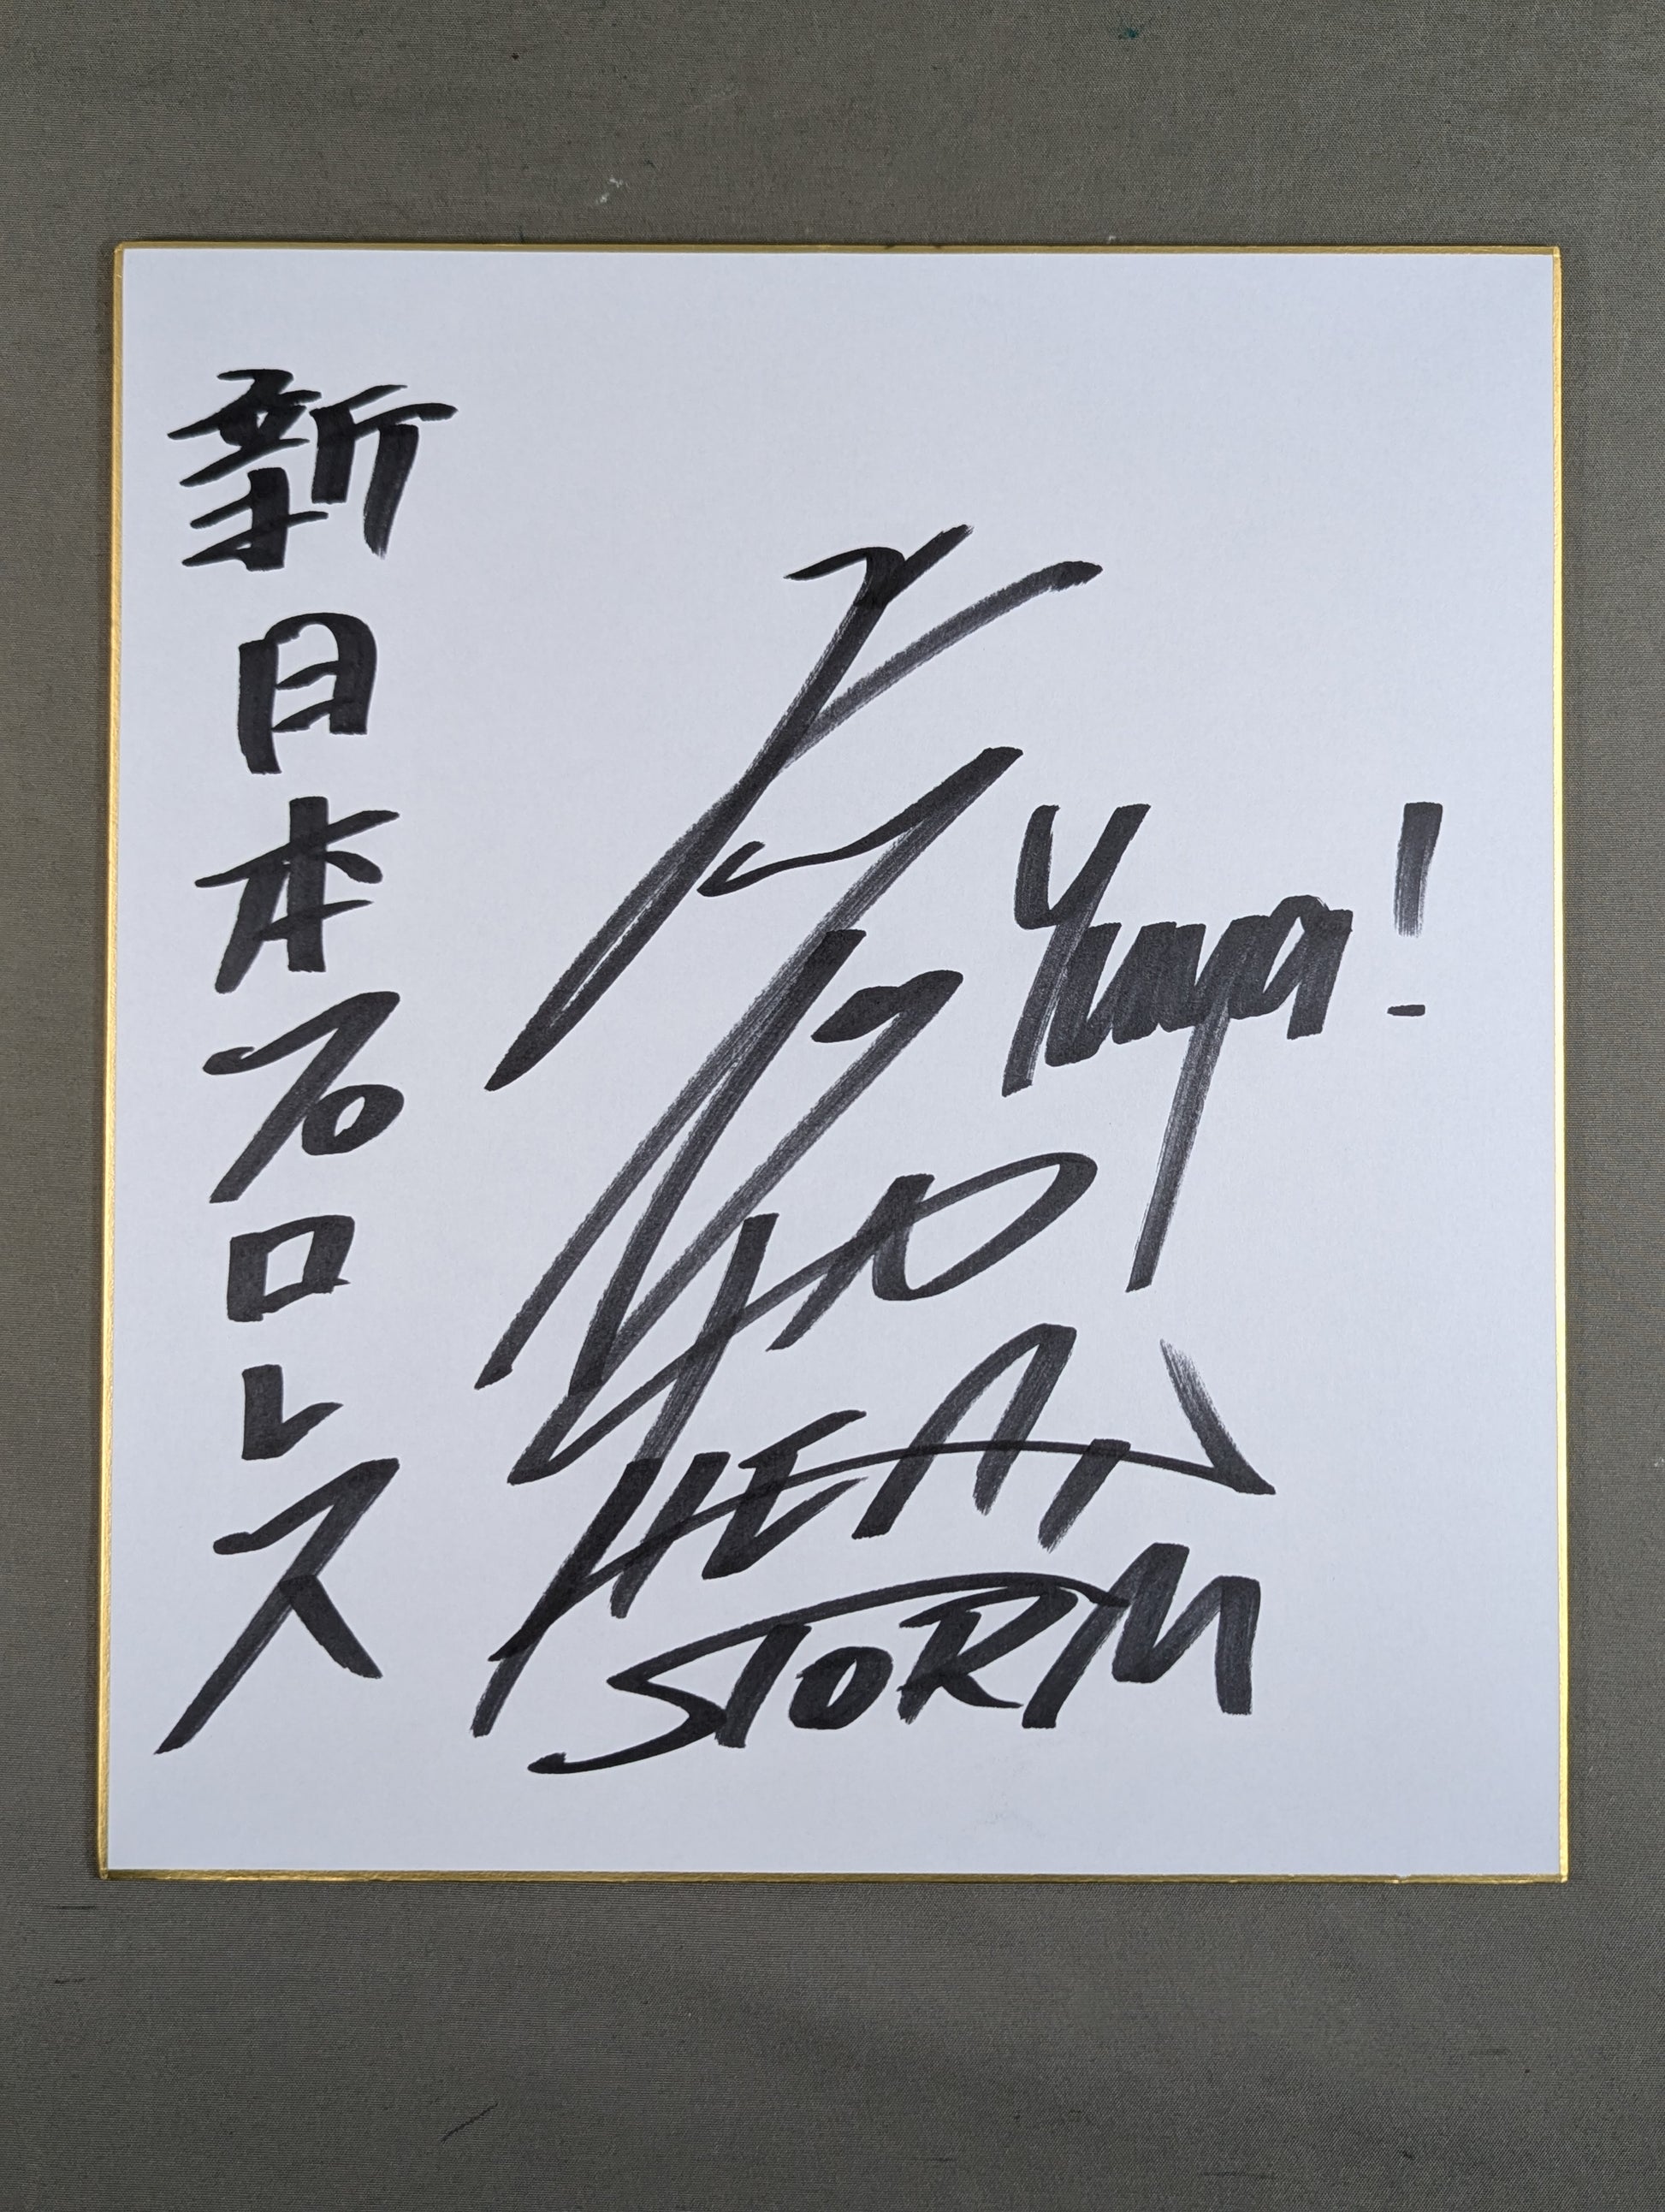 新日本プロレス
Yuya!
HEAT
STORM